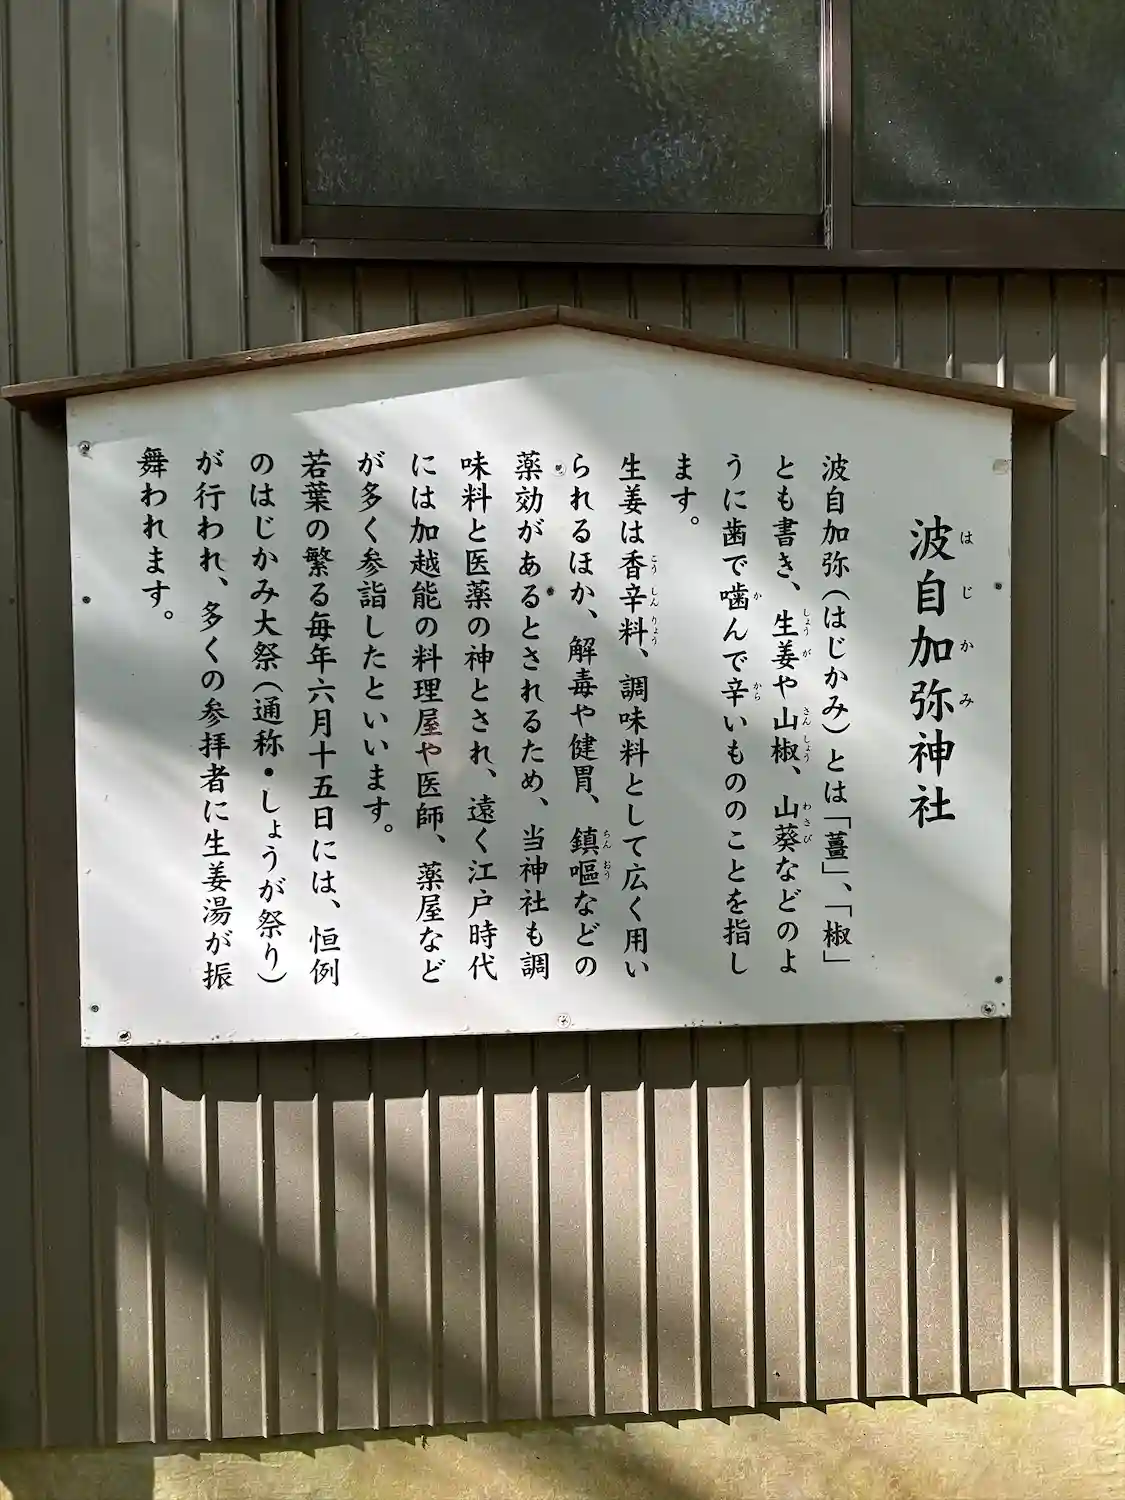 波自加弥神社
はじかみ
波自加弥（はじかみ）とは「薑」、「椒」
とも書き、生姜や山椒、山葵などのよ
しょうが さんしょう わさび
うに歯で噛んで辛いもののことを指し
か から
ます。
生姜は香辛料、調味料として広く用い
こうしんりょう
られるほか、解毒や健胃、鎮嘔などの
ちんおう
薬効があるとされるため、当神社も調
味料と医薬の神とされ、遠く江戸時代
には加越能の料理屋や医師、薬屋など
が多く参詣したといいます。
若葉の繁る毎年六月十五日には、恒例
のはじかみ大祭（通称・しょうが祭り）
が行われ、多くの参拝者に生姜湯が振
舞われます。